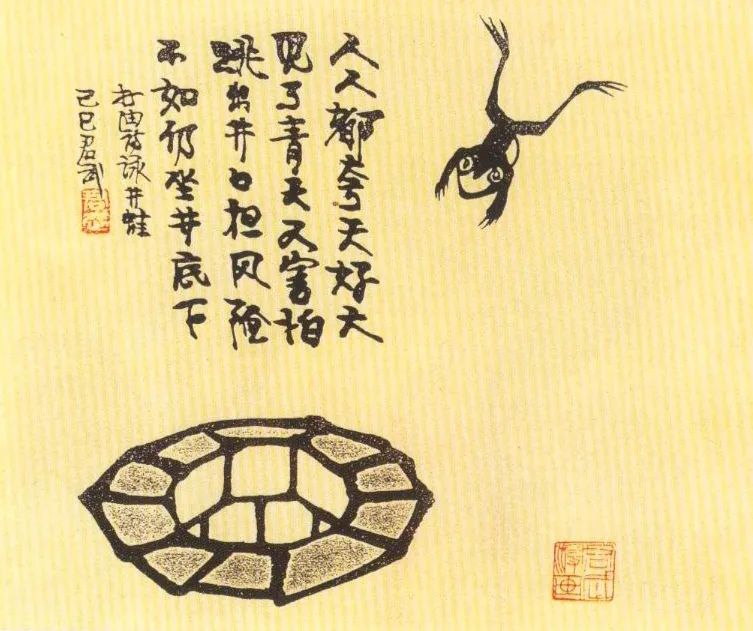 人人都夸天好大
见了青天又害怕
跳出井口担风险
不如仍坐井底下
打油诗咏井蛙
己巳君武